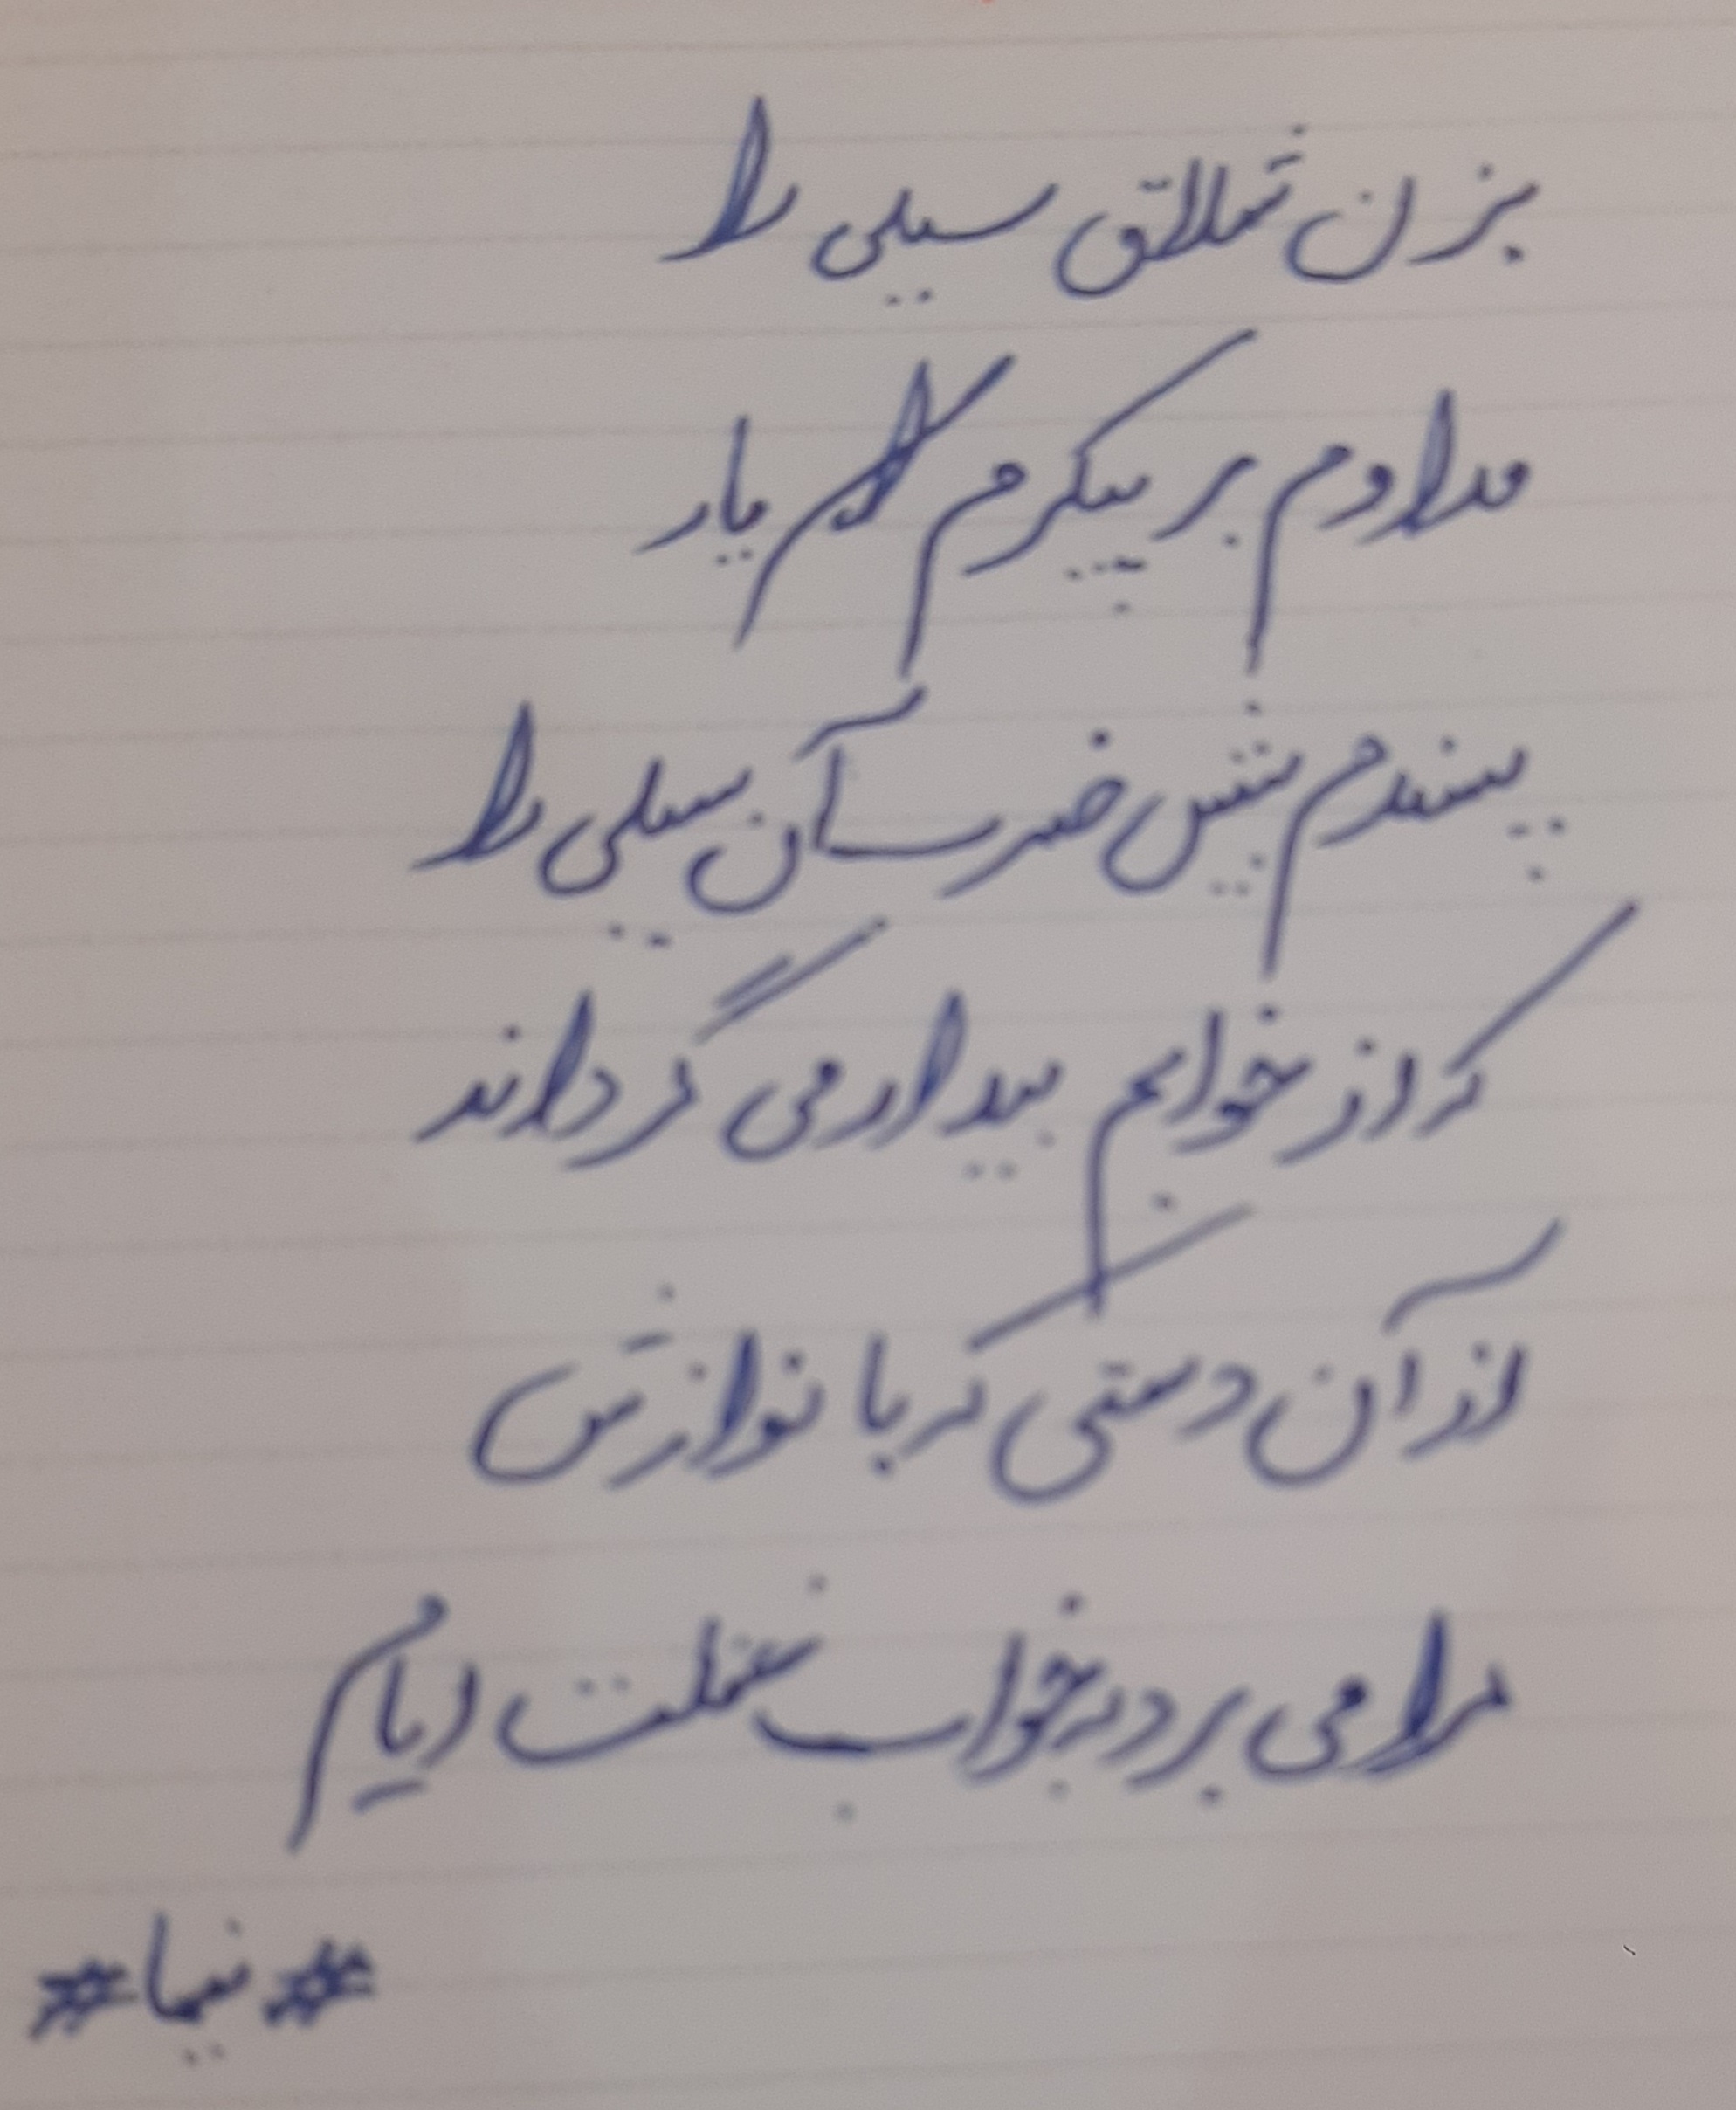 بزن شلاق سیلی را
مداوم بر پیکرم ای یار
پسندم پیش ضرب آن سیلی را
که از خوابم بیدار می گرداند
از آن دستی که با نوازش
مرا می برد در خواب غفلت ایام
#نیما#